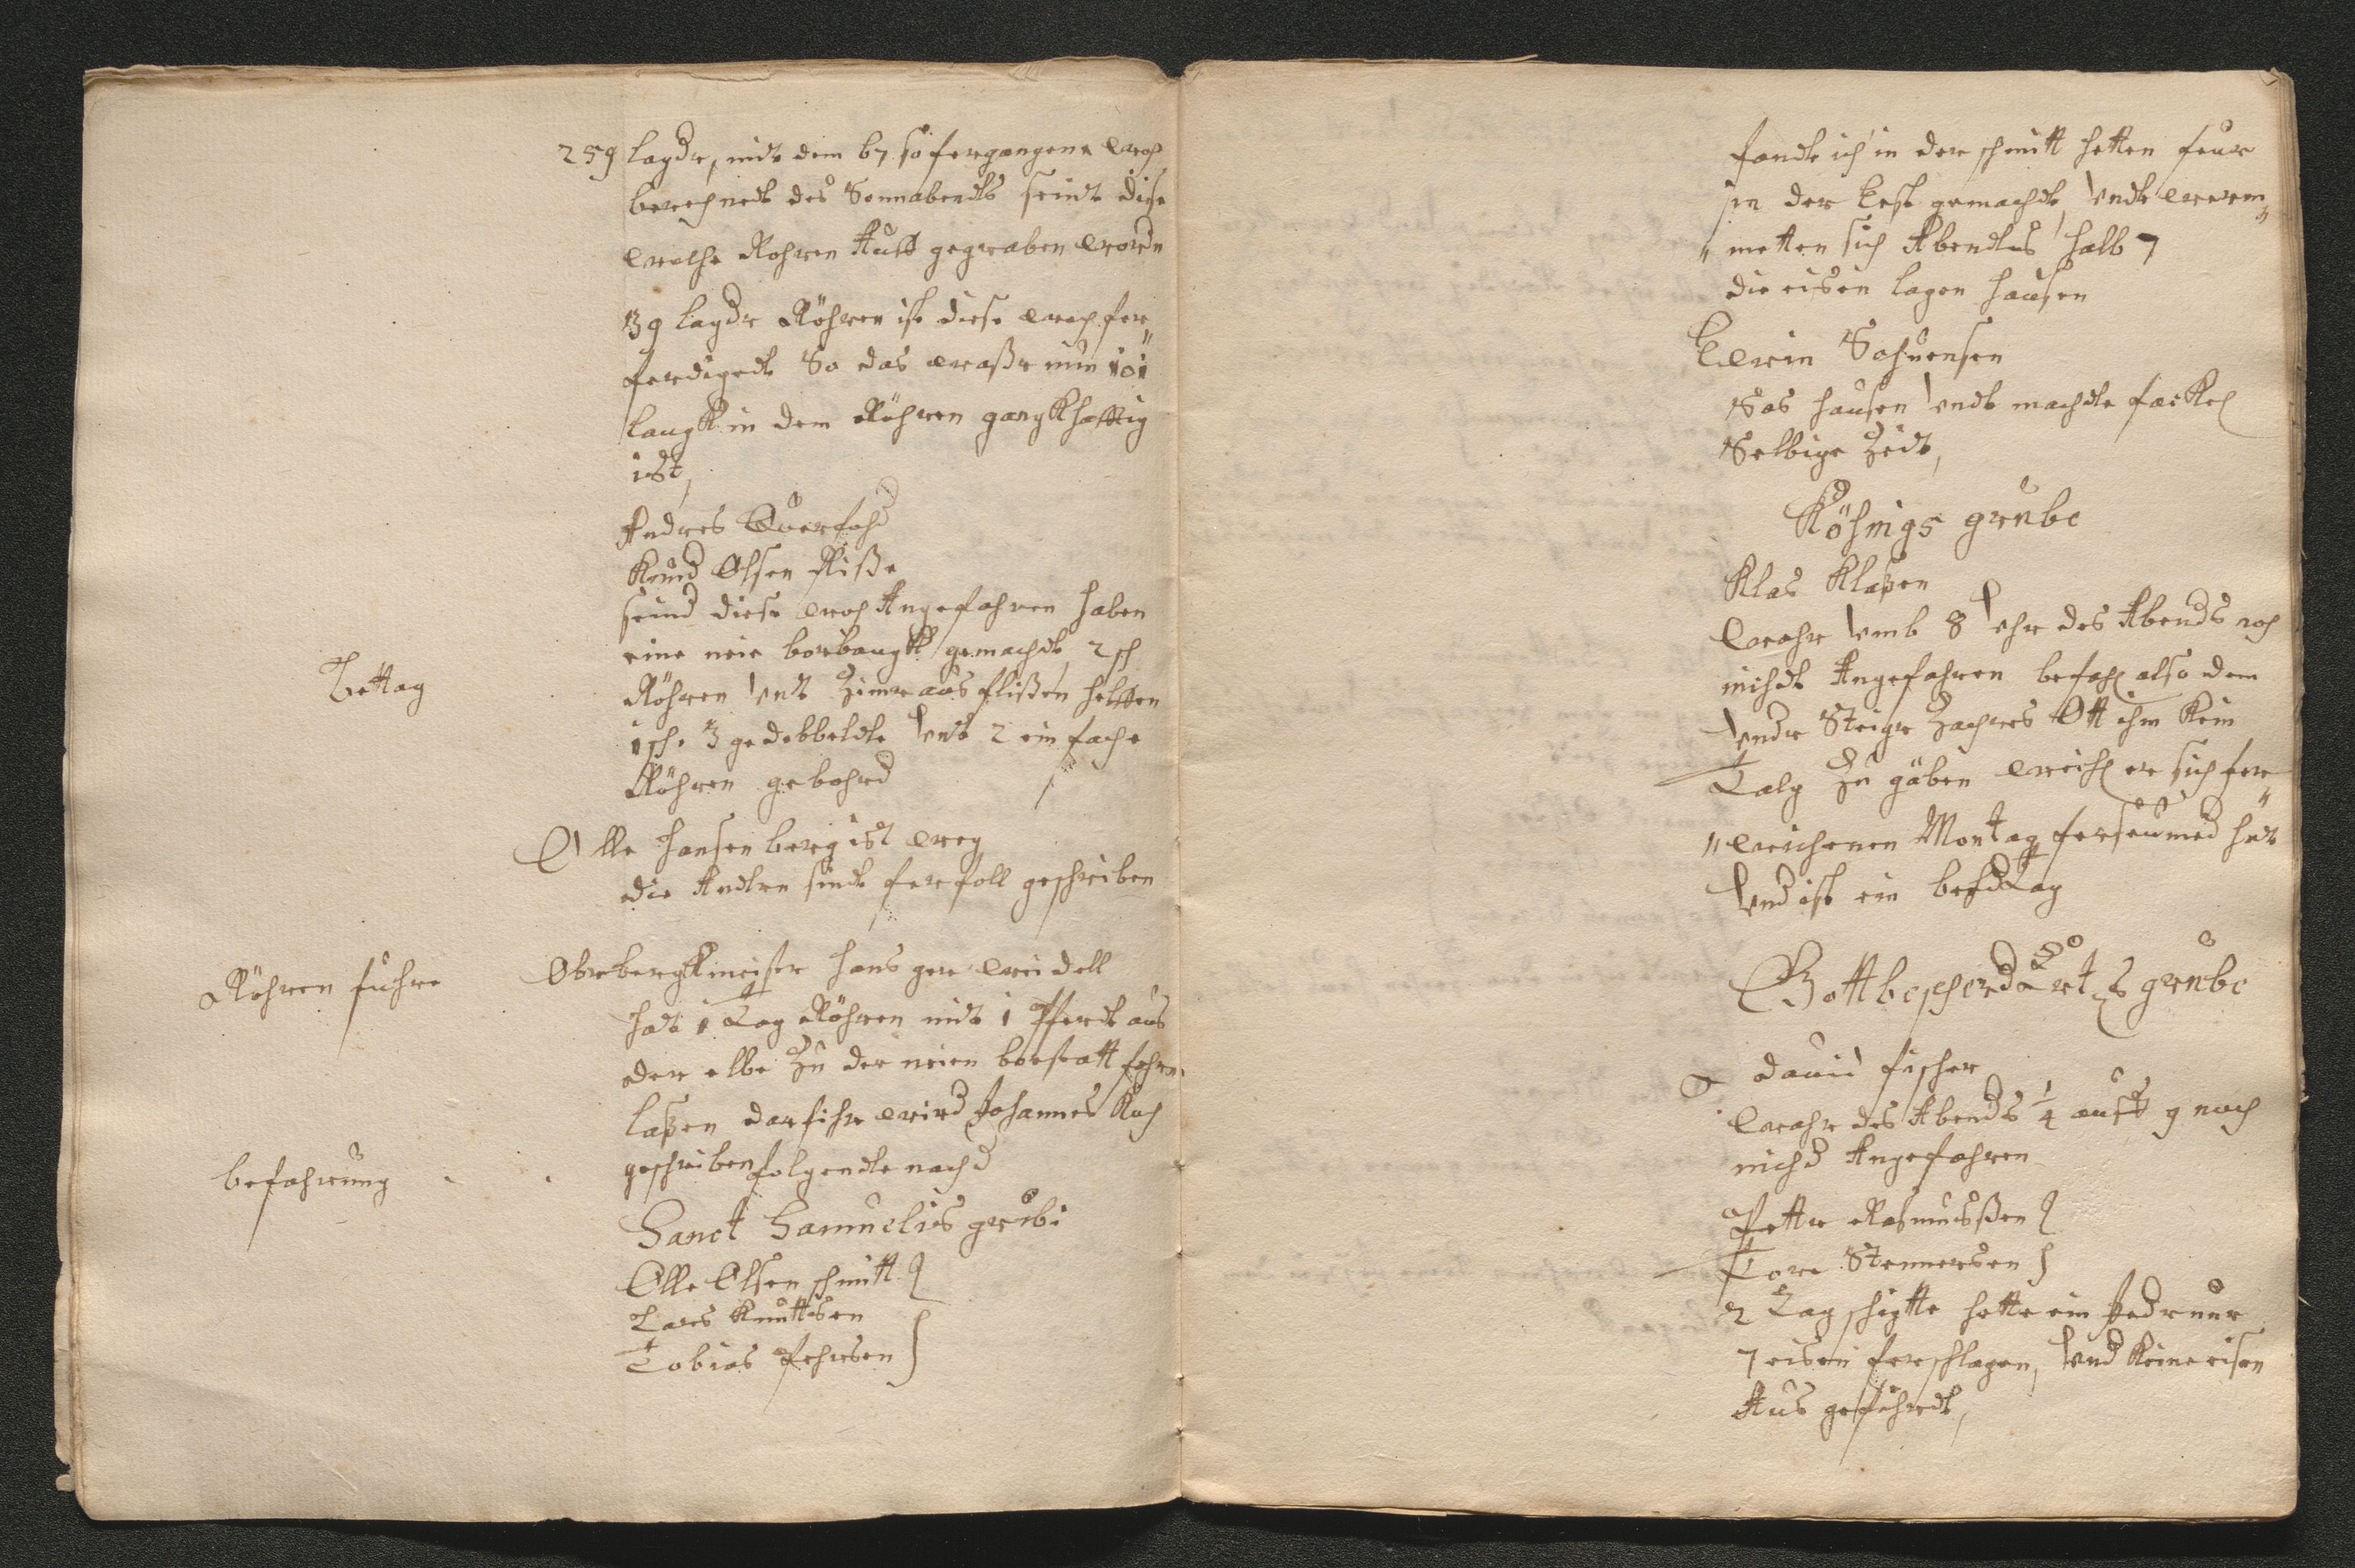 259 lagdr, mit dem 67 so fergangene woch
berechnedt des Sonnabendts seindt dise
welche Rohren Auff gegraben worden
39 lagdr Röhren ist diese woch fer„
ferdigedt So das waßr nun 101
langk in dem Röhren gangkhafftig
ist,
Andres Querfohd
Knud Olsen Fliße
seind diese woch Angefahren haben
eine neie borbangk gemacht, 2 sch
Bettag
Röhren vnd Zimr aus flißen helffen
1 sch. 3 gedobbeldte vnd 2 ein fache
Röhren gebohrd
Olle Hansen berg ist weg
die Andren sindt fer foll geschriben
Röhren fuhre
Obrbergkmeister Hans gen weidell
hadt 1 Tag Röhren mit 1 Pferdt aus
der elbe Zu der neien borstatt fohren
laßen darfihr wird Johannes Koch
geschriben folgendte nachd
befahrung
Sanct Samuelis grubi
Olle Olsen schmitt
Lars Knuttsen
Tobias Pehrsen
fandt ich in der schmitt hetten feur
in der Este gemacht, vndt werem„
„metten sich Abendts halb 7
die eisen lagen hausen
Ewin Sohnensen
Sas hausen vndt machdte fackel
Selbige Zeidt,
Köhnigs grube
Klas Klaßen
wahr vmb 8 vhr des Abends noch
nichdt Angefahren befahl also dem
vndr Steigr Zachres Ott ihm Kein
Talg Zu gäben weihl er sich fer„
„wichenen Montag ferseumed hat
vnd ist ein bethdtag
Gott beschehrdt Ert s grube
dauid fischer
wahr des Abends 1/4 auff 9 noch
nichd Angefahren
Pettr Rasmusßen
Tore Stennersen
2 Tagschigtte hette ein Jedr nur
7 eisen ferschlagen, vnd Keine eisen
Aus gefuhrdt,